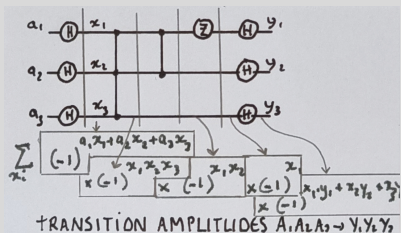 a₁ H x₁ Z H y₁
a₂ H x₂ H y₂
a₃ H x₃ H y₃
∑xᵢ (-1)^a₁x₁+a₂x₂+a₃x₃
x(-1)^x₁x₂x₃ x(-1)^x₁x₂ x(-1)^x₁ x(-1)^x₁y₁+x₂y₂+x₃y
TRANSITION AMPLITUDES A₁A₂A₃→Y₁Y₂Y₃